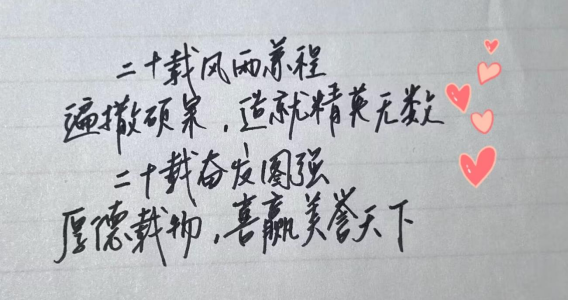 二十载风雨兼程
遍撒硕果，造就精英无数
二十载奋发图强
厚德载物，喜赢美誉天下